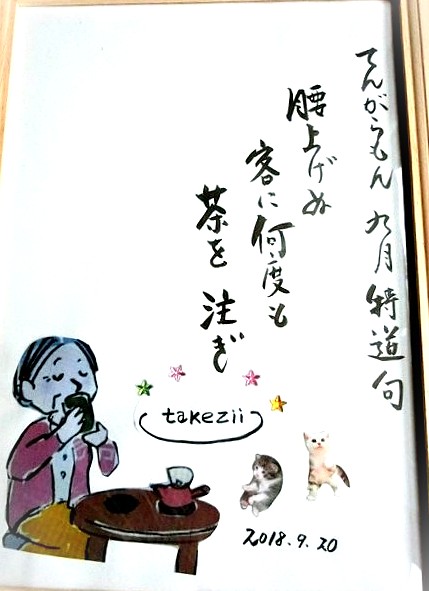 てんがらもん 九月 特道句
腰上げぬ
客に何度も
茶を 注ぎ
takezii
2018.9.20